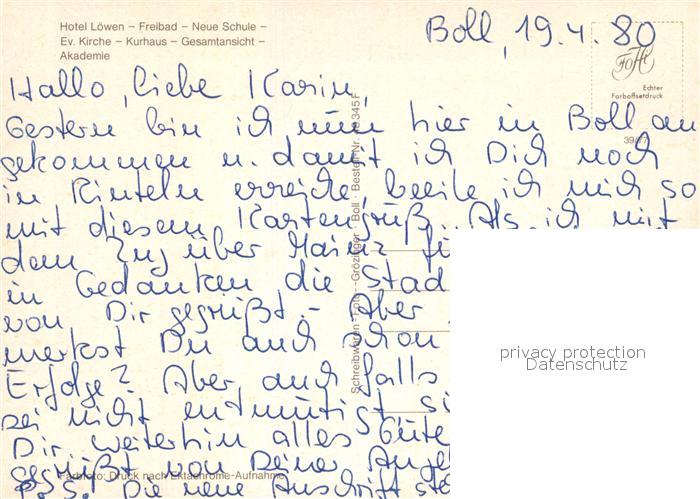 Hotel Löwen – Freibad – Neue Schule –
Ev. Kirche – Kurhaus – Gesamtansicht –
Akademie
Boll, 19.4.80
Echter
Farboffsetdruck
Hallo, liebe Karin,
Gestern bin ich nun hier in Boll an
gekommen u. damit ich Dich noch
in Rinteln erreiche, beeile ich mich so
mit diesem Kartengruß. Als ich mit
dem Zug über Mainz
in Gedanken die Stad
von Dir gegrüßt. – Aber
merkst Du auch schon
Erfolge? Aber auch falls
sei nicht entmutigt
Dir weiterhin alles Gute
gegrüßt von Deiner Angel
P.S. Die neue Anschrift
Farbfoto: Druck nach Ektachrome-Aufnahme
Schreibwaren - Foto - Grözinger · Boll · Bestell-Nr.
privacy protection
Datenschutz